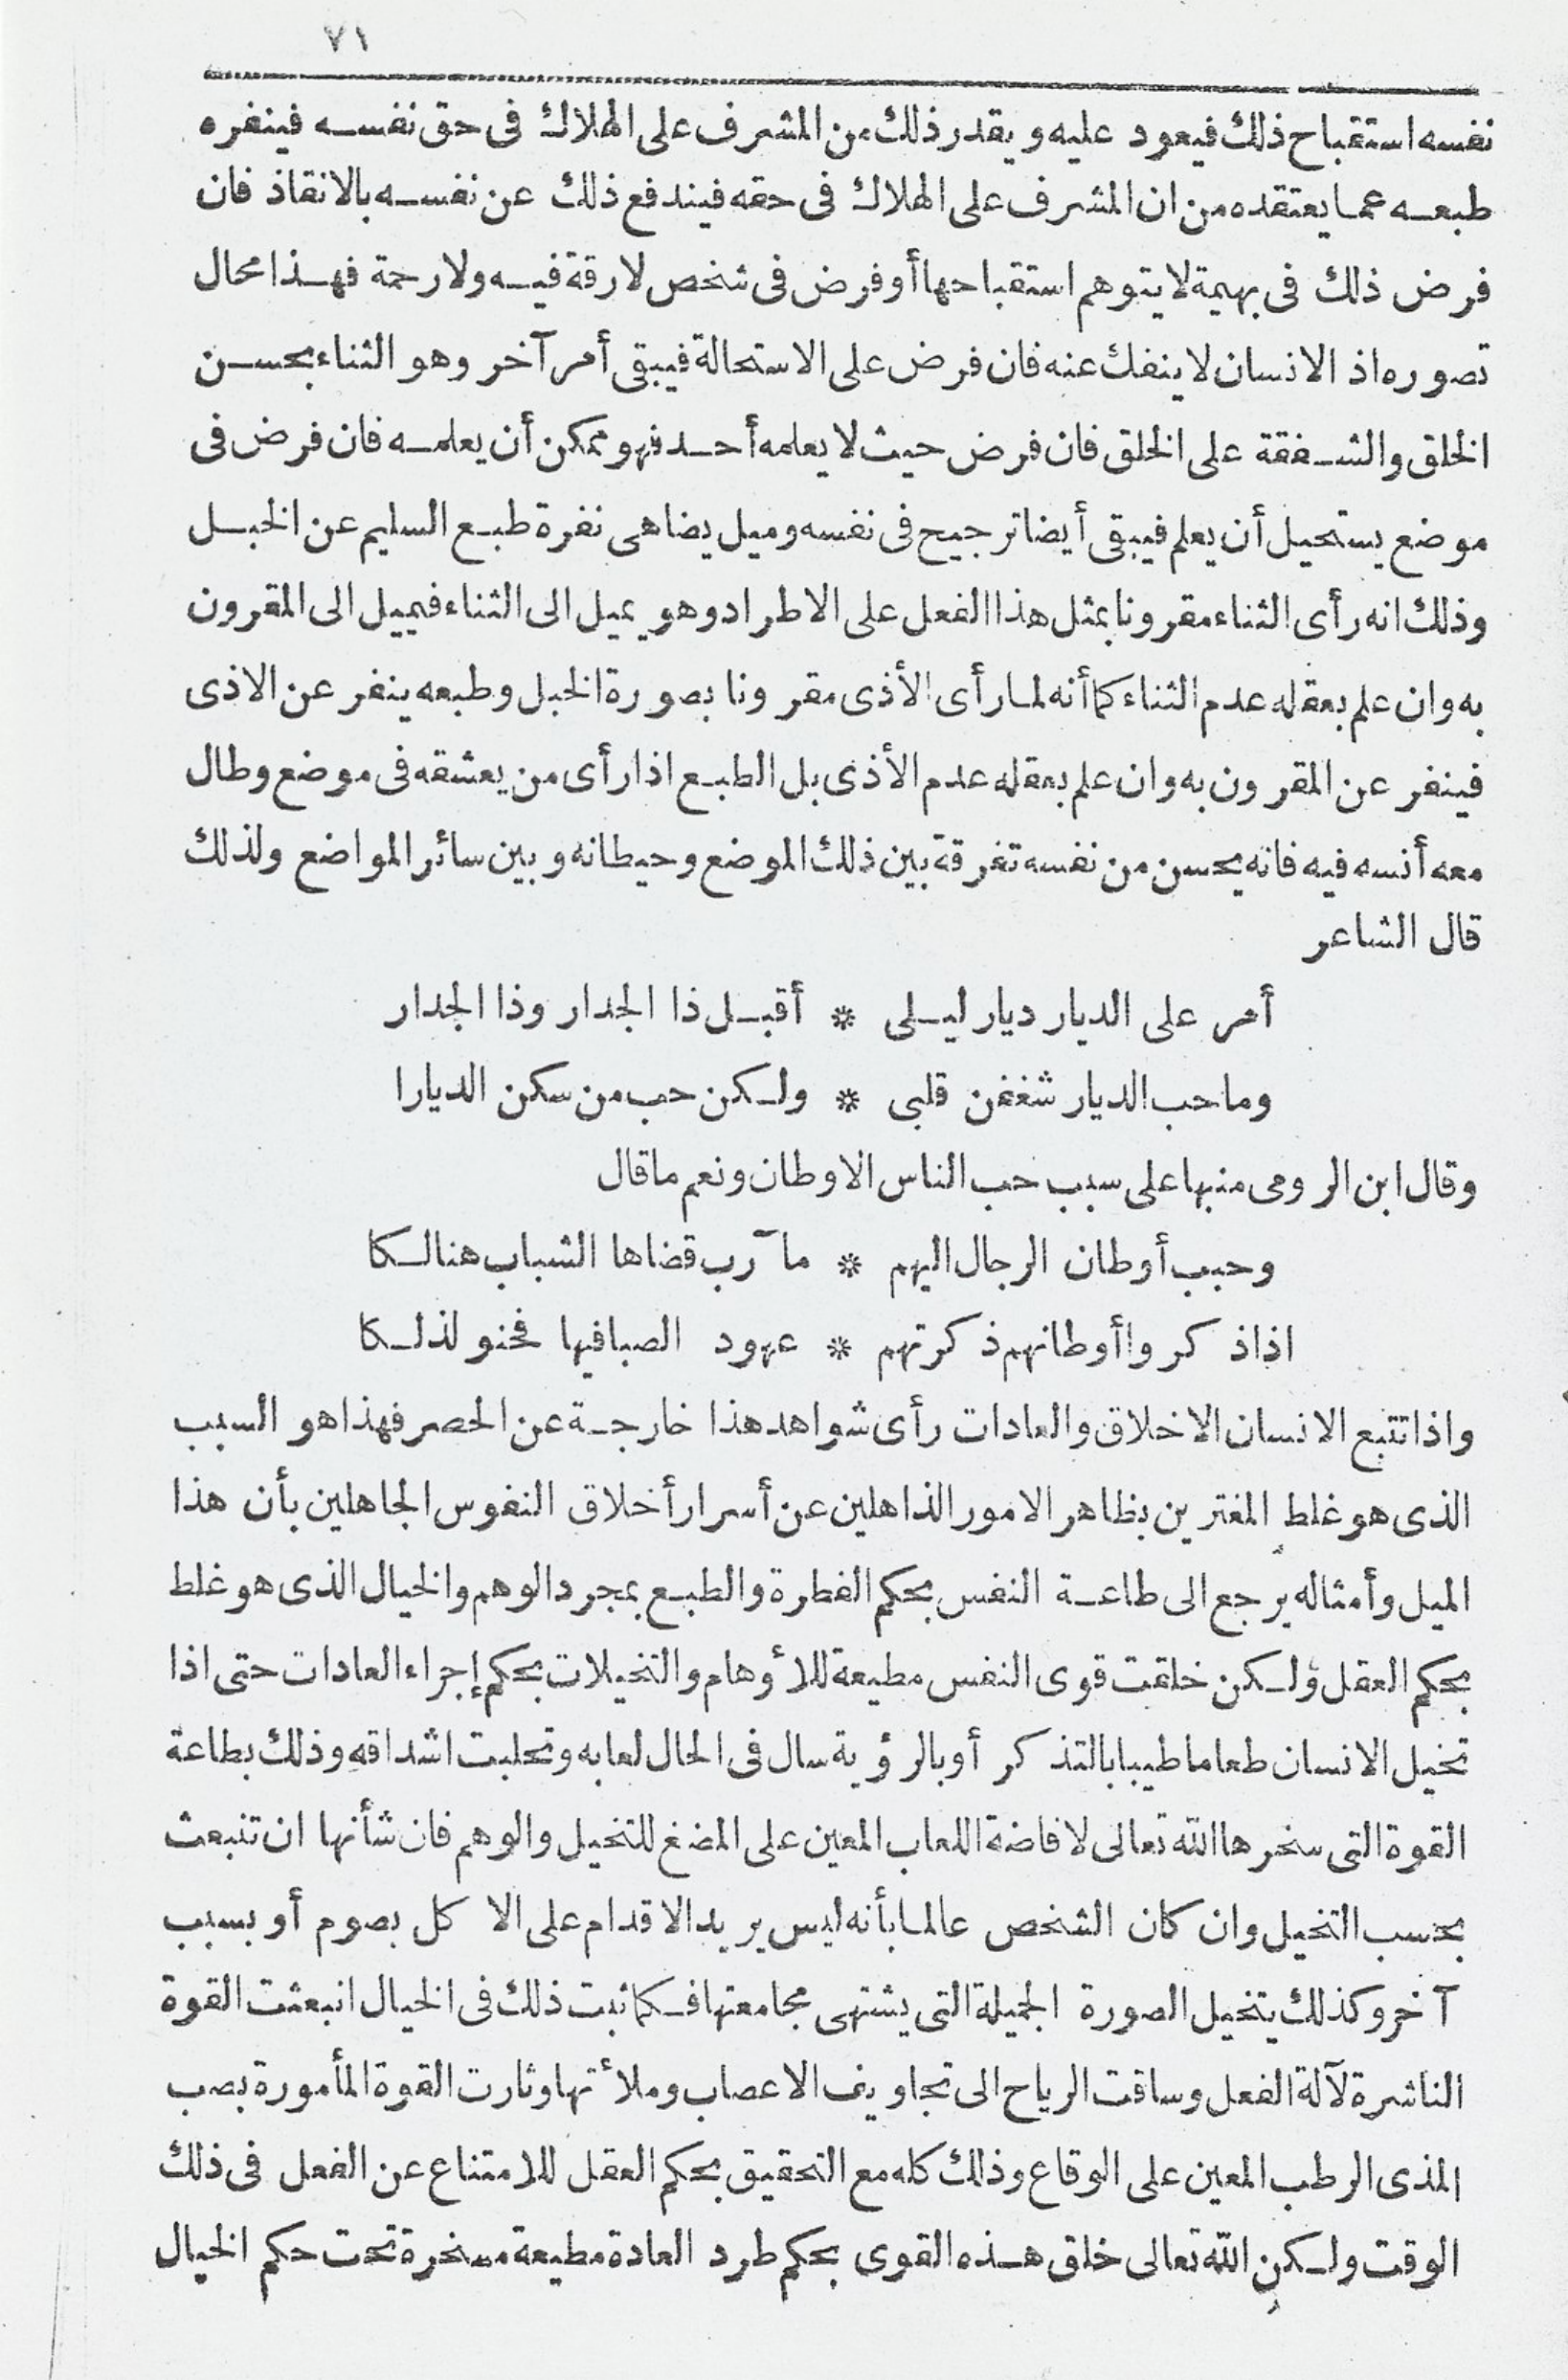 ٧١
نفسه استقباح ذلك فيعود عليه ويقدر ذلك من المشرف على الهلاك فى حق نفسه فينفره
طبعه عما يعتقده من ان المشرف على الهلاك فى حقه فيندفع ذلك عن نفسه بالانقاذ فان
فرض ذلك فى بهيمة لا يتوهم استقباحها أو فرض فى شخص لا رقة فيه ولا رحمة فهذا محال
تصوره اذ الانسان لا ينفك عنه فان فرض على الاستحالة فيبقى أمر آخر وهو الثناء بحسن
الخلق والشفقة على الخلق فان فرض حيث لا يعلمه أحد فهو ممكن أن يعلمه فان فرض فى
موضع يستحيل أن يعلم فيبقى أيضا ترجيح فى نفسه وميل يضاهى نفرة طبع السليم عن الحبل
وذلك انه رأى الثناء مقرونا بمثل هذا الفعل على الاطراد وهو يميل الى الثناء فيميل الى المقرون
به وان علم بعقله عدم الثناء كما أنه لما رأى الأذى مقرونا بصورة الحبل وطبعه ينفر عن الاذى
فينفر عن المقرون به وان علم بعقله عدم الأذى بل الطبع اذا رأى من يعشقه فى موضع وطال
معه أنسه فيه فانه يحسن من نفسه تفرقة بين ذلك الموضع وحيطانه وبين سائر المواضع ولذلك
قال الشاعر
أمر على الديار ديار ليلى * أقبل ذا الجدار وذا الجدار
وما حب الديار شغفن قلبى * ولكن حب من سكن الديارا
وقال ابن الرومى منبها على سبب حب الناس الاوطان ونعم ما قال
وحبب أوطان الرجال اليهم * مآرب قضاها الشباب هنالكا
اذا ذكروا أوطانهم ذكرتهم * عهود الصبا فيها فحنو لذلكا
واذا تتبع الانسان الاخلاق والعادات رأى شواهد هذا خارجة عن الحصر فهذا هو السبب
الذى هو غلط المغترين بظاهر الامور الذاهلين عن أسرار أخلاق النفوس الجاهلين بأن هذا
الميل وأمثاله يرجع الى طاعة النفس بحكم الفطرة والطبع بمجرد الوهم والخيال الذى هو غلط
بحكم العقل ولكن خلقت قوى النفس مطيعة للأوهام والتخيلات بحكم إجراء العادات حتى اذا
تخيل الانسان طعاما طيبا بالتذكر أو بالرؤية سال فى الحال لعابه وتحلبت اشداقه وذلك بطاعة
القوة التى سخرها الله تعالى لافاضة اللعاب المعين على المضغ للتخيل والوهم فان شأنها ان تنبعث
بحسب التخيل وان كان الشخص عالما بأنه ليس يريد الاقدام على الاكل بصوم أو بسبب
آخر وكذلك يتخيل الصورة الجميلة التى يشتهى مجامعتها فكما ثبت ذلك فى الخيال انبعثت القوة
الناشرة لآلة الفعل وساقت الرياح الى تجاويف الاعصاب وملأتها وثارت القوة المأمورة بصب
المذى الرطب المعين على الوقاع وذلك كله مع التحقيق بحكم العقل للامتناع عن الفعل فى ذلك
الوقت ولكن الله تعالى خلق هذه القوى بحكم طرد العادة مطيعة مسخرة تحت حكم الخيال